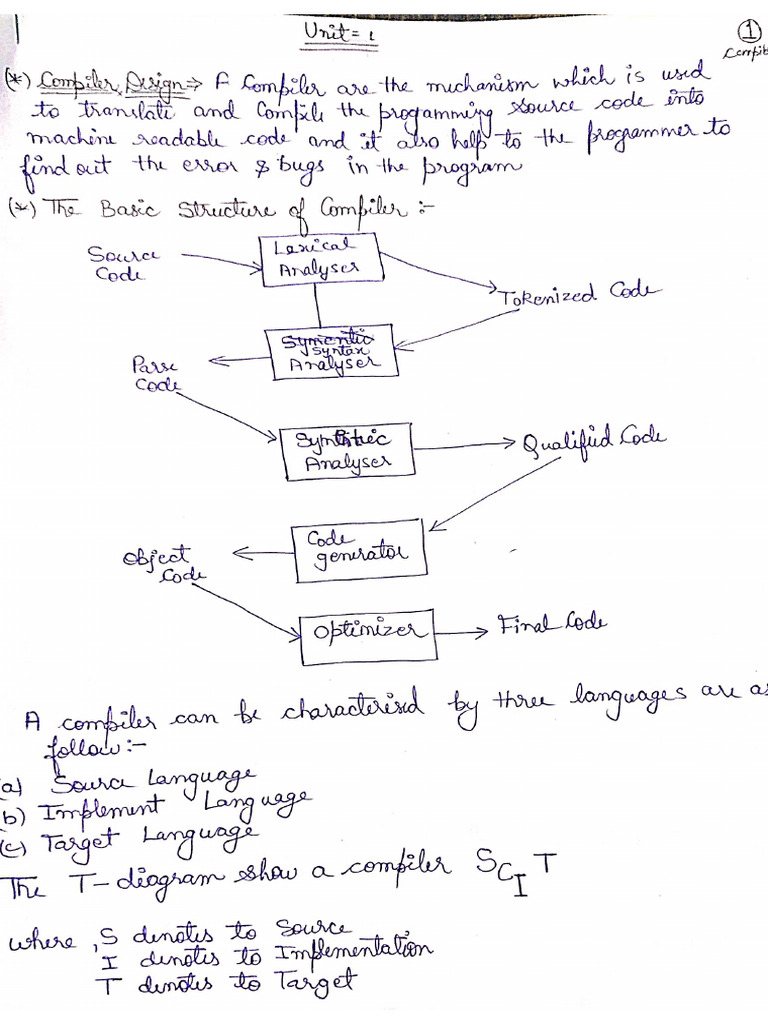 Unit = 1
1
(*) Compiler Design ⇒ A Compiler are the mechanism which is used
to translate and Compile the progamming source code into
machine readable code and it also help to the programmer to
find out the error & bugs in the program
(*) The Basic Structure of Compiler :-
Source
Code
Lexical
Analyser
Tokenized Code
Syntax
Analyser
Parse
Code
Analyser
Qualified Code
Code
generator
Object
Code
Optimizer
Final Code
A compiler can be characterised by three languages are as
follow :-
(a) Source Language
(b) Implement Language
(c) Target Language
The T-diagram show a compiler SCIT
where , S denotes to Source
I denotes to Implementation
T denotes to Target